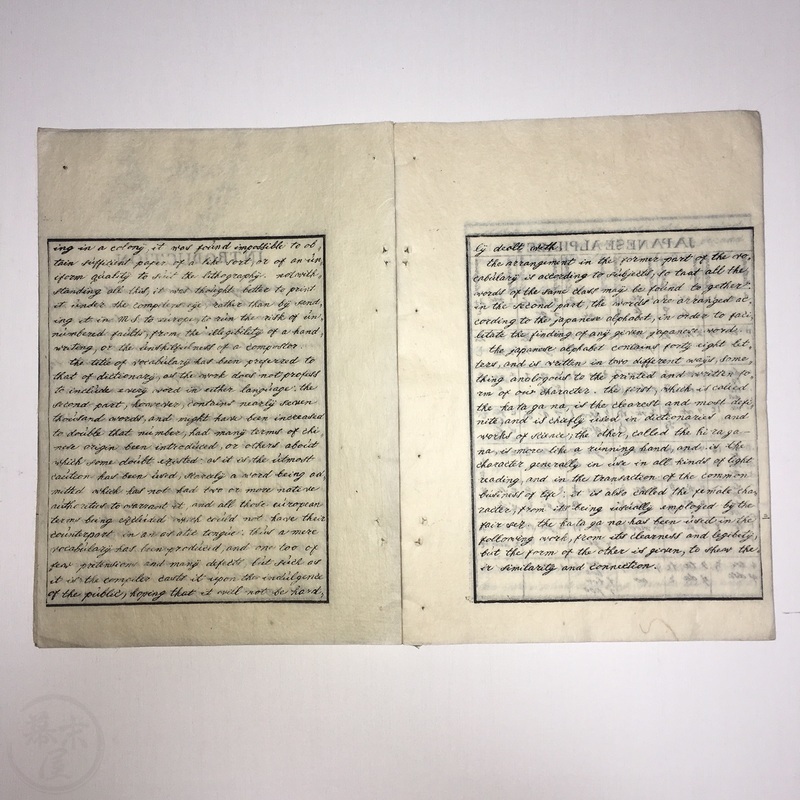 ing in a colony it was found impossible to ob,
tain sufficient paper of a like sort, or of an un,
iform quality to suit the lithography. notwith,
standing all this, it was thought better to print
it under the compilers eye rather than by send,
ing it in M S to europe, to run the risk of un,
numbered faults, from the illegibility of a hand,
writing, or the unskilfulness of a compositor.
the title of vocabulary has been preferred to
that of dictionary, as the work does not profess
to include every word in either language. the
second part, however, contains nearly seven
thousand words, and might have been increased
to double that number, had many terms of chi
nese origin been introduced, or others about
which some doubt existed. as it is the utmost
caution has been used, scarcely a word being ad,
mitted which has not had two or more native
authorities to warrant it, and all those european
terms being excluded which could not have their
counterpart in an asiatic tongue. thus a mere
vocabulary has been produced, and one too of
few pretensions and many defects, but such as
it is the compiler casts it upon the indulgence
of the public; hoping that it will not be hard,
ly dealt with.
the arrangement in the former part of the vo,
cabulary is according to subjects, so taat all the
words of the same class may be found to gether.
in the second part the words are arranged ac,
cording to the japanese alphabet, in order to faci,
litate the finding of any given japanese word.
the japanese alphabet contains forty eight let,
ters, and is written in two different ways, some,
thing analogous to the printed and written fo,
rm of our character. the first, which is called
the ka ta ga na, is the clearest and most defi,
nite, and is chiefly used in dictionaries and
works of science; the other, called the hi ra ga
na, is more like a running hand, and is the
character generally in use in all kinds of light
reading, and in the transaction of the common
business of life: it is also called the female cha,
racter, from its being usually employed by the
fair sex. the ka ta ga na has been used in the
following work, from its clearness and legibily,
but the form of the other is given, to shew the,
ir similarity and connection.